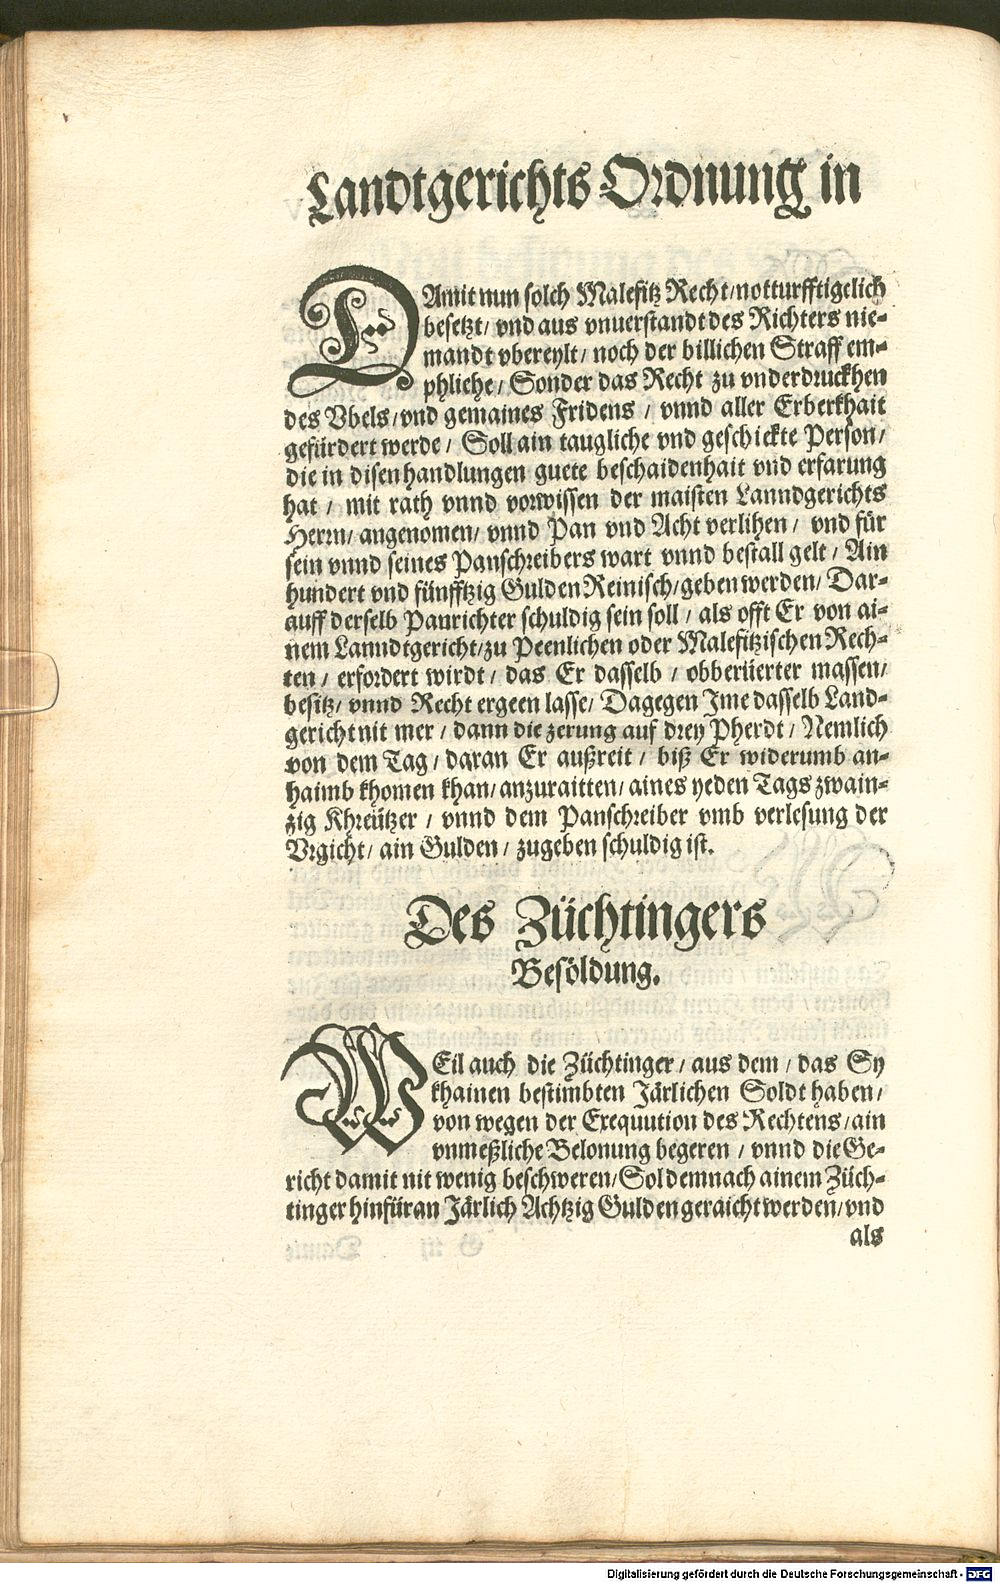 Landtgerichts Ordnung in
DAmit nun solch Malefitz Recht/notturfftigelich
besetzt/ vnd aus vnuerstandt des Richters nie-
mandt vbereylt/ noch der billichen Straff em-
phliehe/ Sonder das Recht zu vnderdruckhen
des Vbels/vnd gemaines Fridens / vnnd aller Erberkhait
gefürdert werde/ Soll ain taugliche vnd geschickte Person/
die in disen handlungen guete beschaidenhait vnd erfarung
hat / mit rath vnnd vorwissen der maisten Lanndgerichts
Herrn/ angenomen/ vnnd Pan vnd Acht verlihen/ vnd für
sein vnnd seines Panschreibers wart vnnd bestall gelt / Ain
hundert vnd fünfftzig Gulden Reinisch/geben werden/ Dar-
auff derselb Panrichter schuldig sein soll / als offt Er von ai-
nem Lanndtgericht/zu Peenlichen oder Malefitzischen Rech-
ten / erfordert wirdt / das Er dasselb / obberüerter massen/
besitz/ vnnd Recht ergeen lasse/ Dagegen Jme dasselb Land-
gericht nit mer / dann die zerung auf drey Pherdt / Nemlich
von dem Tag / daran Er außreit / biß Er widerumb an-
haimb khomen khan/ anzuraitten/ aines yeden Tags zwain-
zig Khreützer / vnnd dem Panschreiber vmb verlesung der
Vrgicht/ ain Gulden / zugeben schuldig ist.
Des Züchtingers
Besöldung.
WEil auch die Züchtinger / aus dem / das Sy
khainen bestimbten Järlichen Soldt haben/
von wegen der Erequution des Rechtens/ain
vnmeßliche Belonung begeren / vnnd die Ge-
richt damit nit wenig beschweren/Sol demnach ainem Züch-
tinger hinfüran Järlich Achtzig Gulden geraicht werden/vnd
als
Digitalisierung gefördert durch die Deutsche Forschungsgemeinschaft - DFG